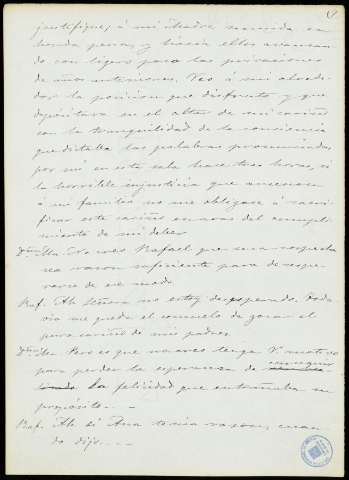 justifique; á mi madre sumida en
honda pena, y hácia ellos avanzan
do con ligero paso las privaciones
de años anteriores. Veo á mi alrede
dor la posicion que disfruto y que
depositára en el altar de mi cariño
con la tranquilidad de la conciencia
que dictaba las palabras pronunciadas
por mi en esta sala hace tres horas, si
la horrible injusticia que amenaza
á mi familia no me obligase á sacri
ficar este cariño en aras del cumpli
miento de mi deber
D.ña Ma. No creo Rafael que sea respuesta
sea razon suficiente para desespe
rarse de ese modo
Raf. Ah Señora no estoy desesperado. Toda
via me queda el consuelo de gozar el
puro cariño de mis padres
D.ña Ma. Pero es que no creo tenga V. motivo
para perder la esperanza de conseguir
la felicidad que entrañaba su
propósito...
Raf. Ah si Ana tenia razon, cuan
do dijo....